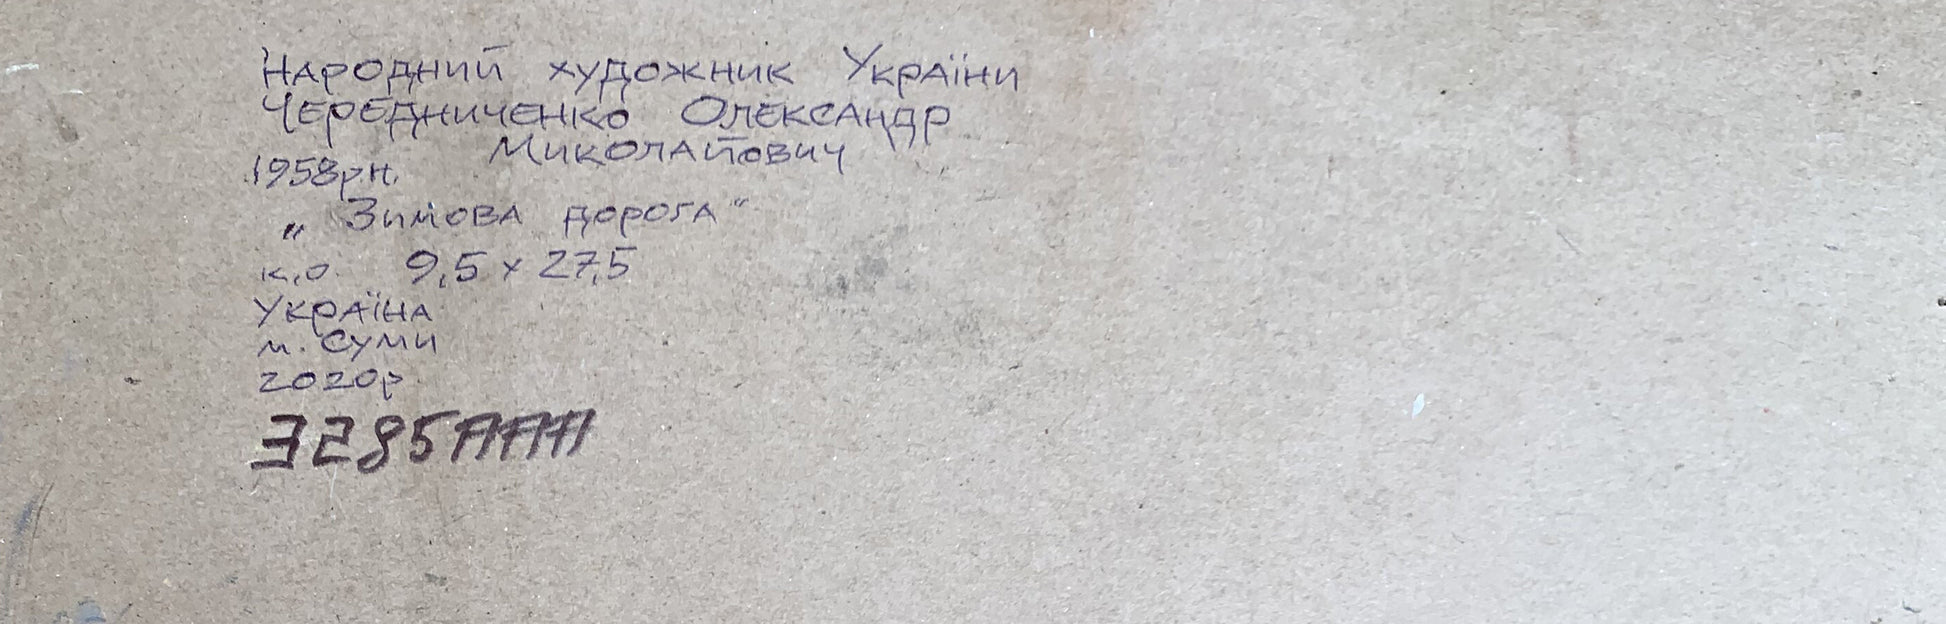 Народний художник України
Чередниченко Олександр
Миколайович
1958рн.
„Зимова дорога“
к,о. 9,5 х 27,5
Україна
м. Суми
2020р